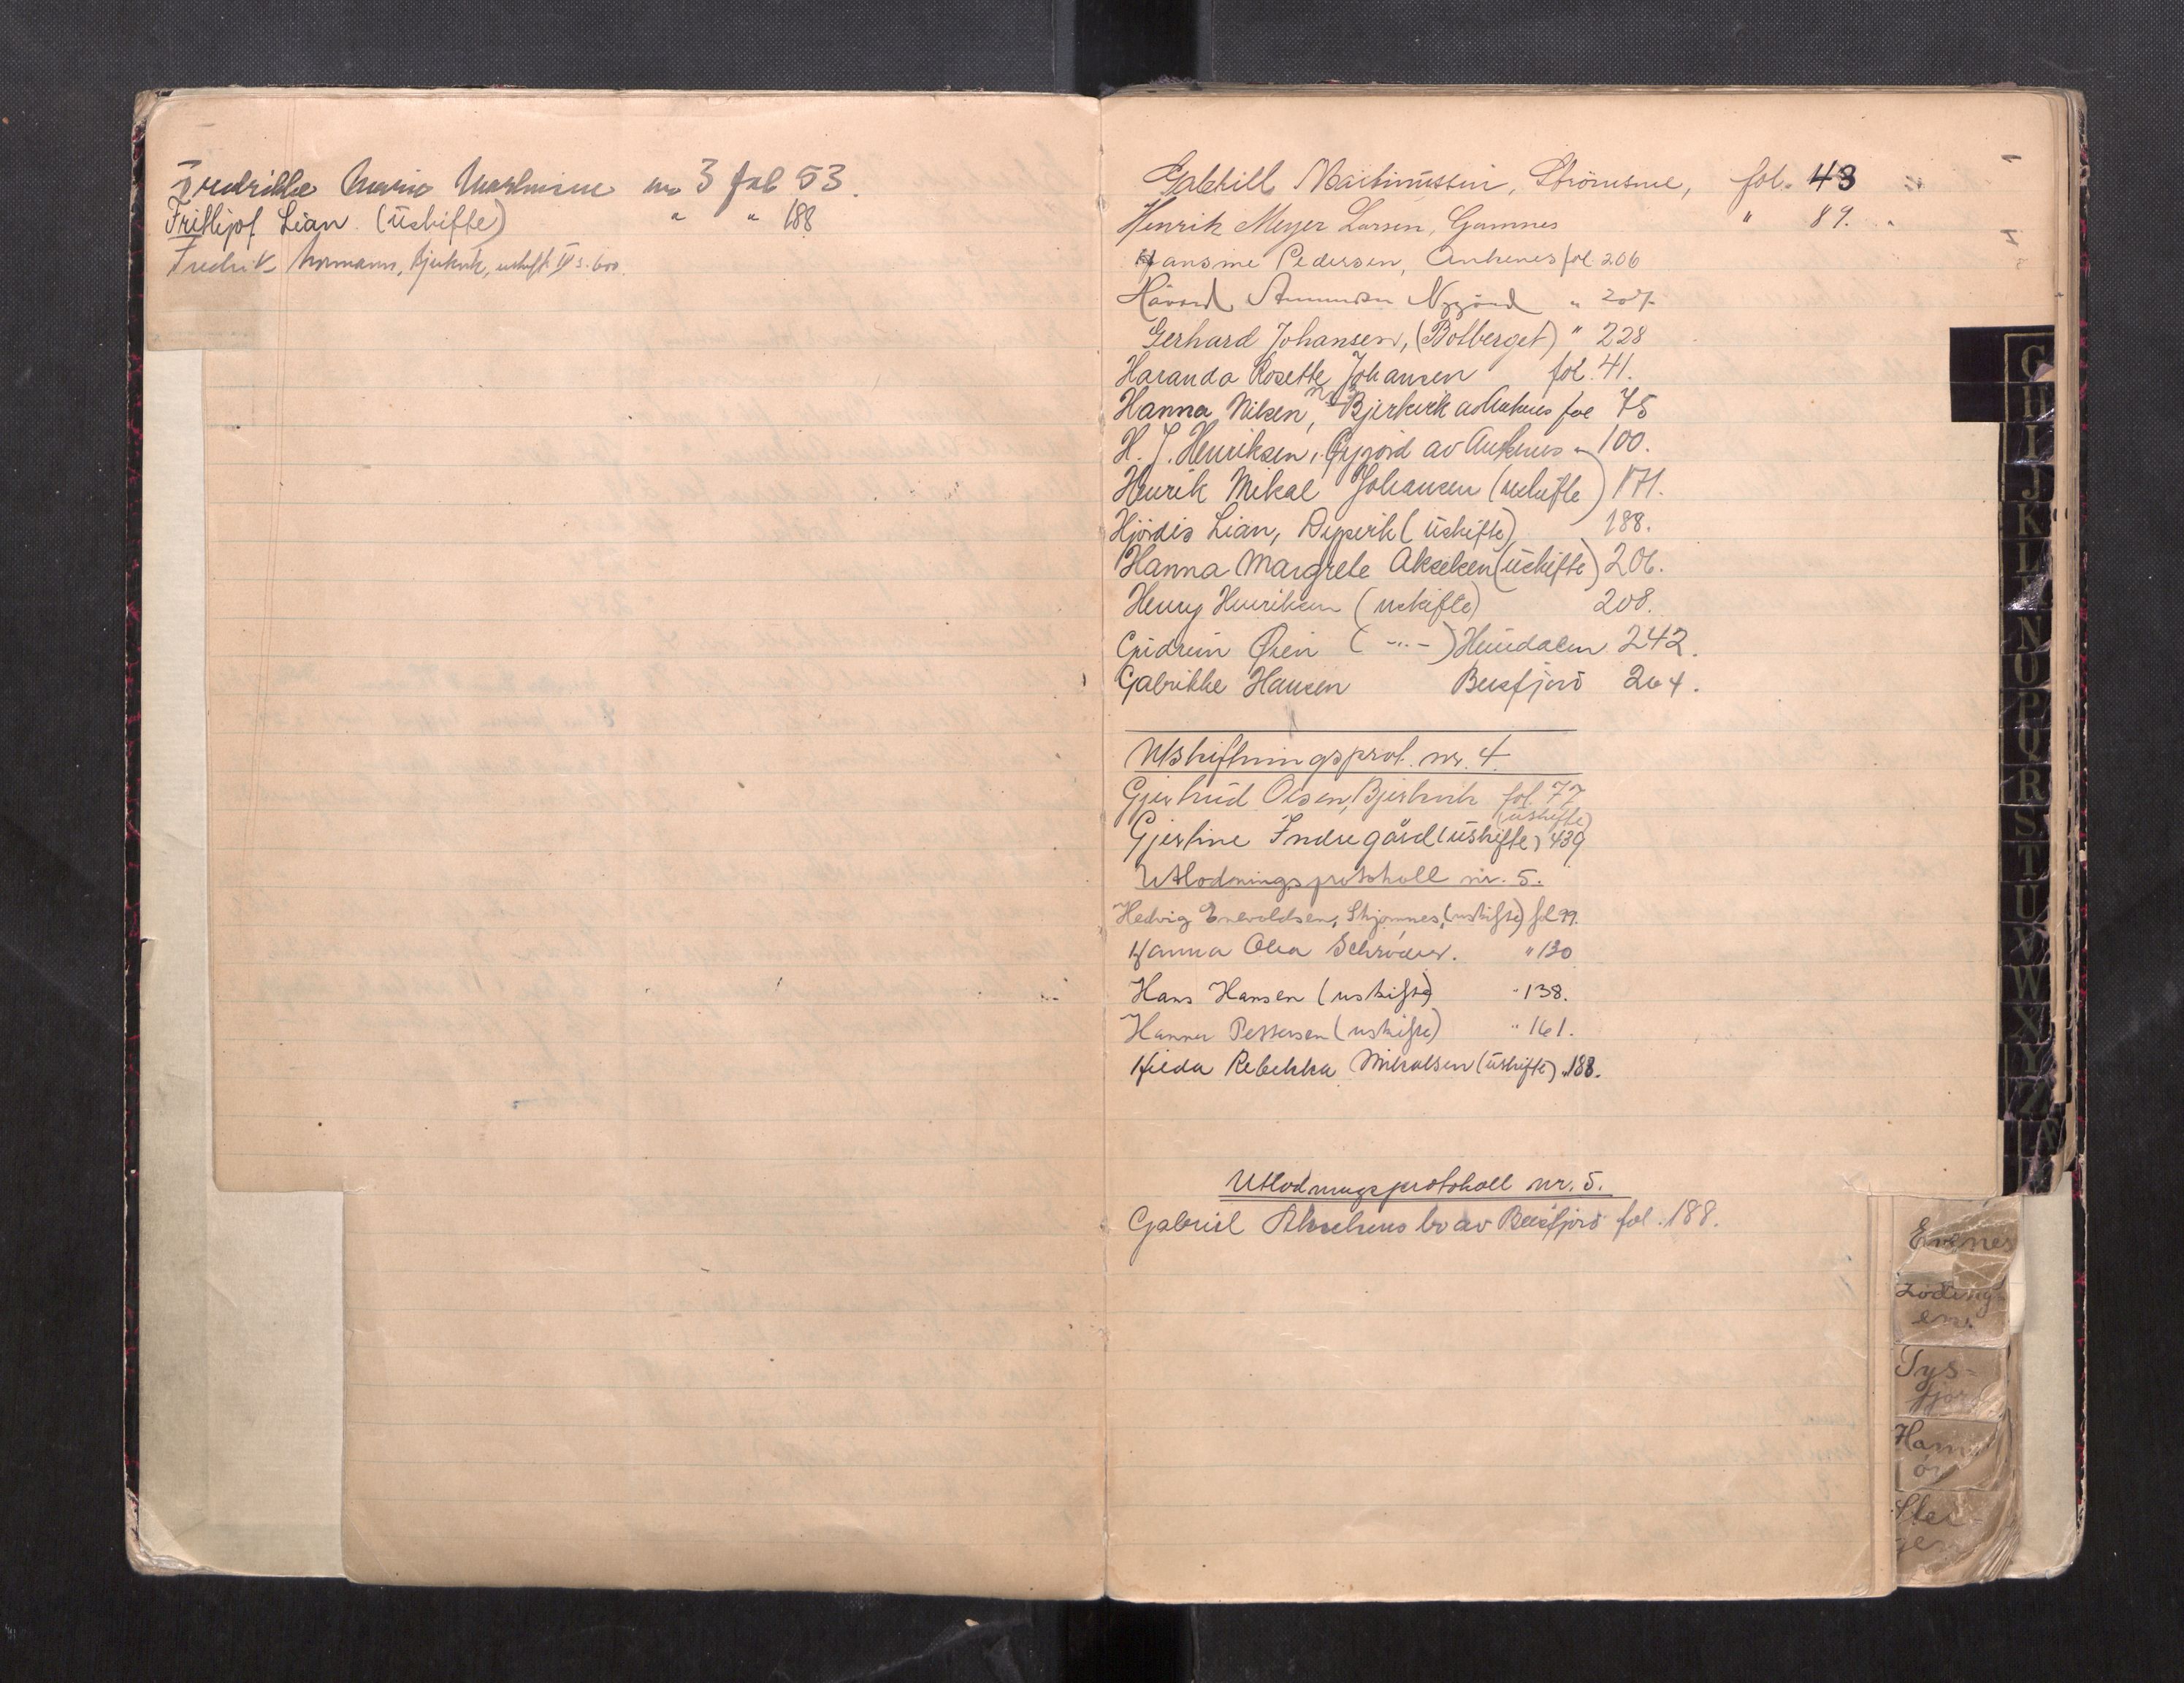 Fredrikke Marie Mathisen nr 3 fol 53.
Fritljof Lian (uskifte) " " 188
Fredrik Normann, Bjerkvik, uskift. IV s. 600.
Gabriell Martinussen, Strömsnes, fol. 43
Henrik Meyer Larsen, Gamnes " 89.
Hansine Pedersen, Ankenes fol 206
Håvard Nygård " 207
Gerhard Johansen, (Botberget) " 228
Haranda Rosette Johansen fol. 41.
Hanna Nilsen, Bjerkvik av Ankenes fol 75
H. J. Henriksen, Öyjord av Ankenes " 100.
Henrik Mikal Johansen (uskifte) 171.
Hjördis Lian, (uskifte) 188.
Hanna Margrete Akselsen (uskifte) 206.
Henry Henriksen (uskifte) 208.
Gudrun Øien ( -"- ) Heudalen 242.
Gabrikke Hansen Beisfjord 264.
Utskiftningsprot. nr. 4
Gjertrud Olsen, Bjerkvik fol. 77
(uskifte)
Gjertine Indregård (uskifte) 439
Utlodningsprotokoll nr. 5.
Hedvig Enevoldsen, Skjomnes, (uskifte) fol 99.
Hanna Olea Schrøder. " 130
Hans Hansen (uskifte) " 138.
Hanna Pettersen (uskifte) " 161.
Hilda Rebekka Mikalsen (uskifte) " 188.
Utlodningsprotokoll nr. 5.
Gabriel Akselsens bo av Beisfjord fol. 188.
G
H
I
J
K
L
N
O
P
Q
R
S
T
U
V
W
X
Y
Z
Æ
Evenes
Lødingen
Tys-
fjord
Ham
ör
Stei-
gen